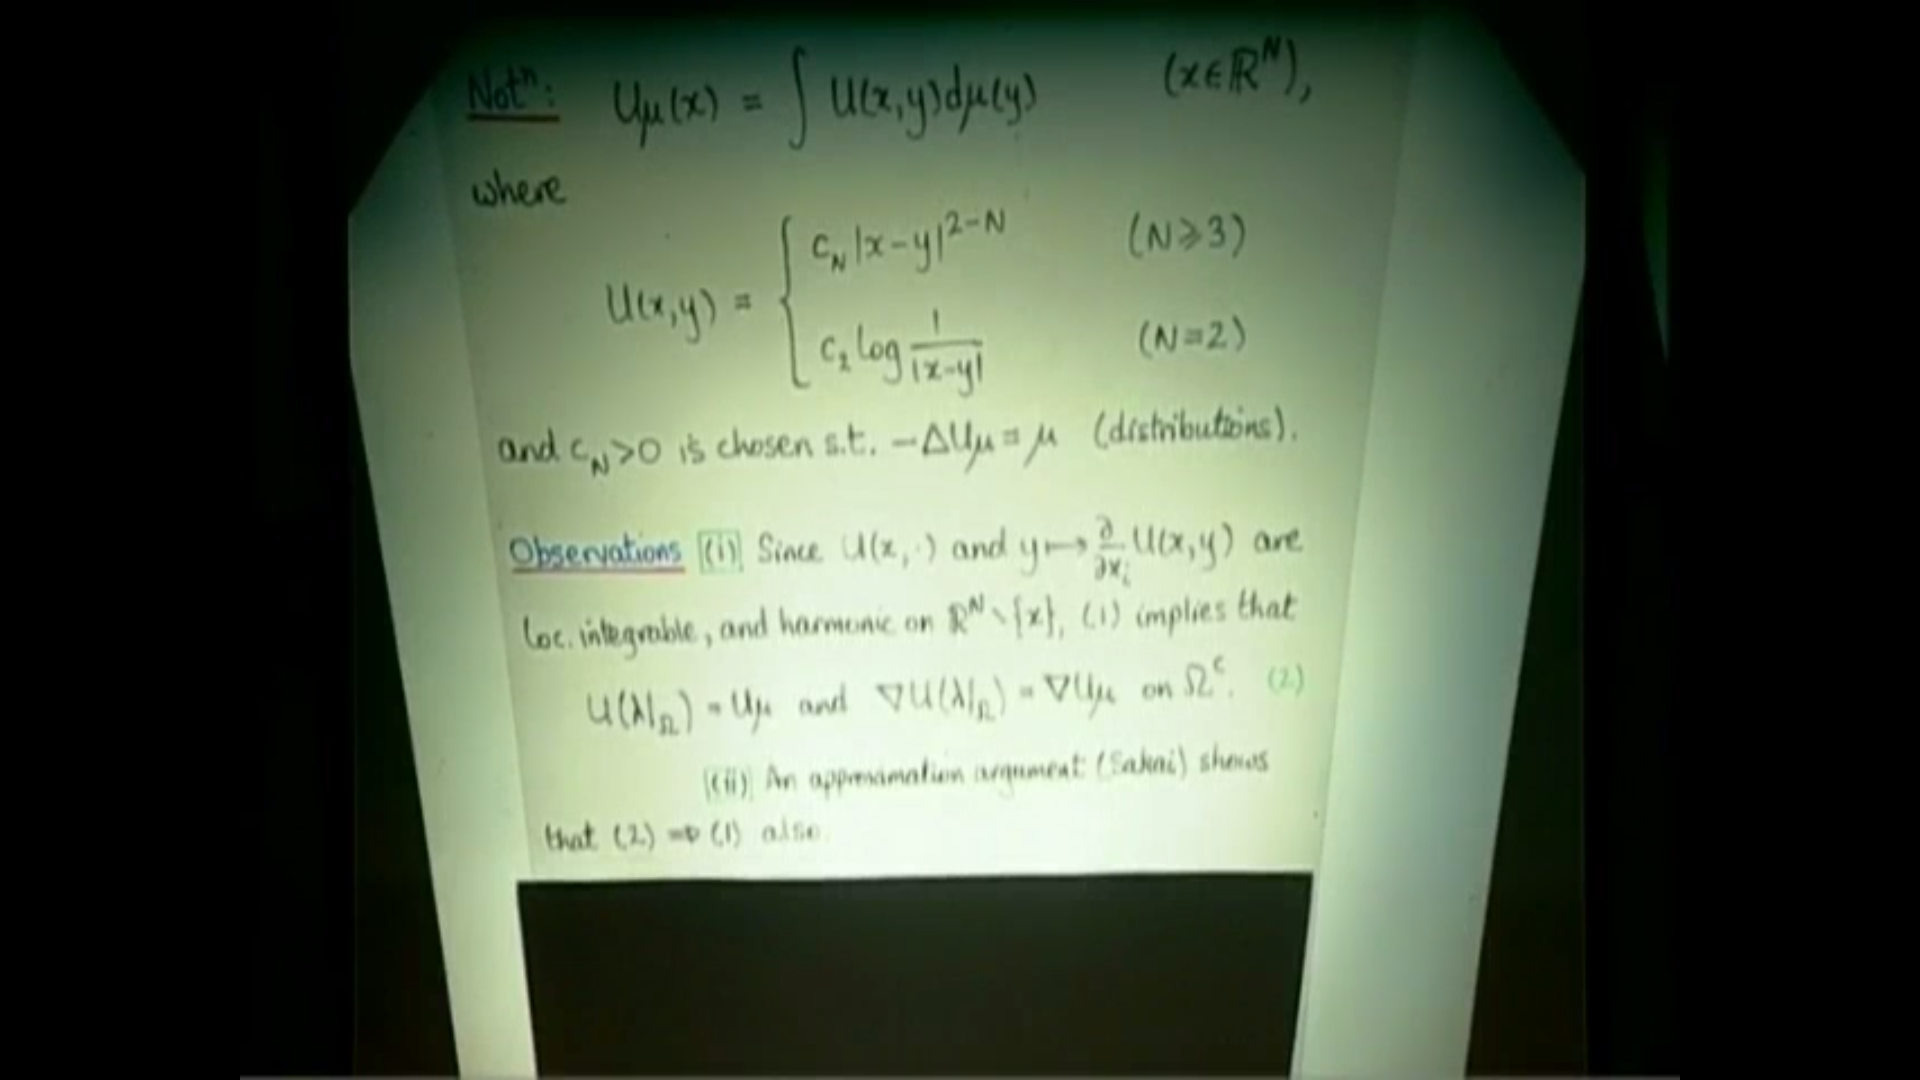 Notⁿ: Uμ(x) = ∫ U(x,y)dμ(y) (x∈ℝᴺ),
where
U(x,y) = { c_N |x-y|^{2-N} (N⩾3)
c₂ log 1/|x-y| (N=2)
and c_N>0 is chosen s.t. -ΔUμ = μ (distributions).
Observations (i) Since U(x,·) and y ↦ ∂/∂x_i U(x,y) are
loc. integrable, and harmonic on ℝᴺ∖{x}, (1) implies that
U(λ|_Ω) = Uμ and ∇U(λ|_Ω) = ∇Uμ on Ωᶜ. (2)
(ii) An approximation argument (Sakai) shows
that (2) ⇒ (1) also.